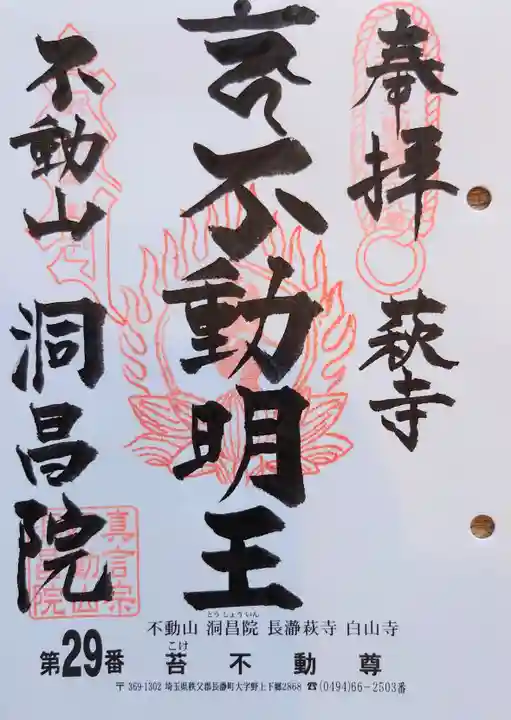 奉拝 萩寺
不動明王
不動山 洞昌院
真言宗
不動山 洞昌院 長瀞萩寺 白山寺
とうしょういん
第29番 苔不動尊
こけ
〒369-1302 埼玉県秩父郡長瀞町大字野上下郷2868 ☎(0494)66-2503番